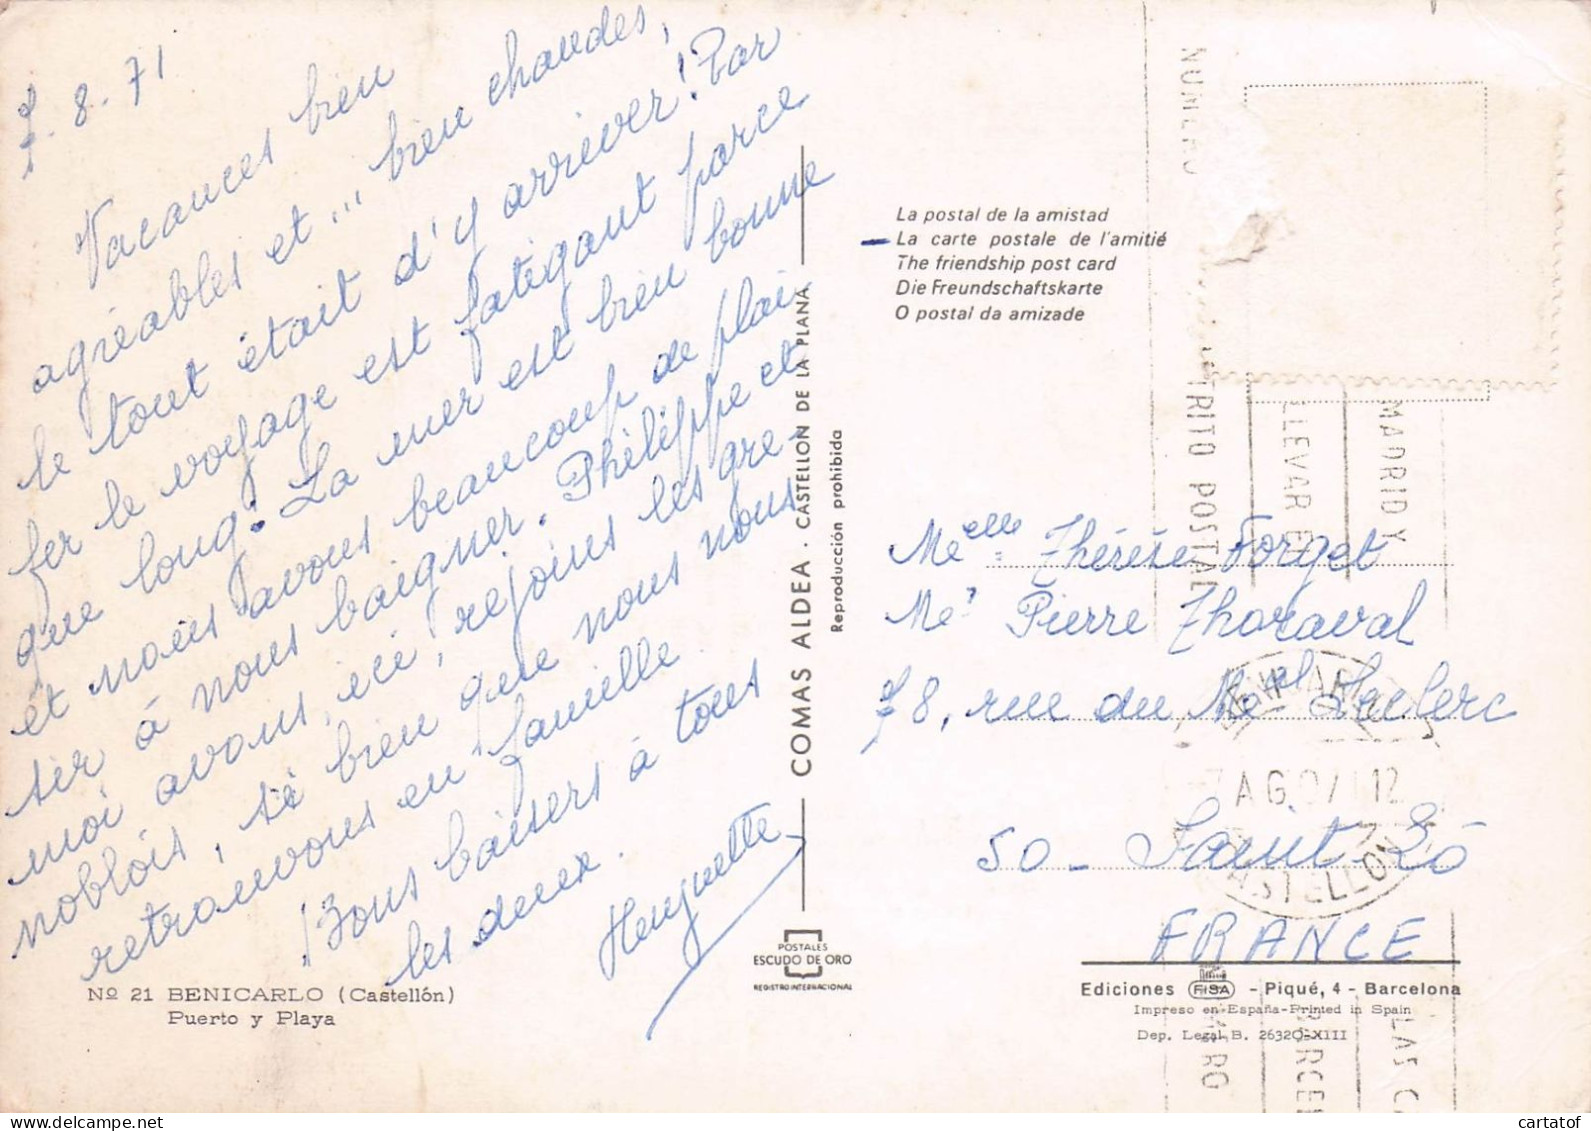 7-8-71
Vacances bien
agréables et ... bien chaudes,
le tout était d'y arriver! Par
fer le voyage est fatigant parce
que long. La mer est bien bonne
et nous avons beaucoup de plai-
sir à nous baigner. Philippe et
moi avons, ici, rejoins les gre-
noblois, si bien que nous nous
retrouvons en famille.
Bons baisers à tous
les deux.
Huguette
Nº 21 BENICARLO (Castellón)
Puerto y Playa
COMAS ALDEA - CASTELLON DE LA PLANA
Reproducción prohibida
POSTALES
ESCUDO DE ORO
REGISTRO INTERNACIONAL
La postal de la amistad
La carte postale de l'amitié
The friendship post card
Die Freundschaftskarte
O postal da amizade
Melle Thérèse Forget
Mr Pierre Thoraval
78, rue du Mal Leclerc
50 - Saint-Lô
FRANCE
Ediciones FISA - Piqué, 4 - Barcelona
Impreso en España-Printed in Spain
Dep. Legal B. 26320-XIII
NUMERO
TRITO POSTAL
LLEVAR EL
MADRID Y
AGO 71 12
CASTELLON
BARCEL
LAS C
cartatof